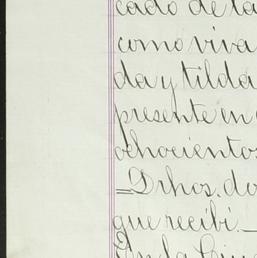 cado de la
como viva
da y tilda
presente en
ochocientos
=Drhos. do
que recibí._
En la Ciu